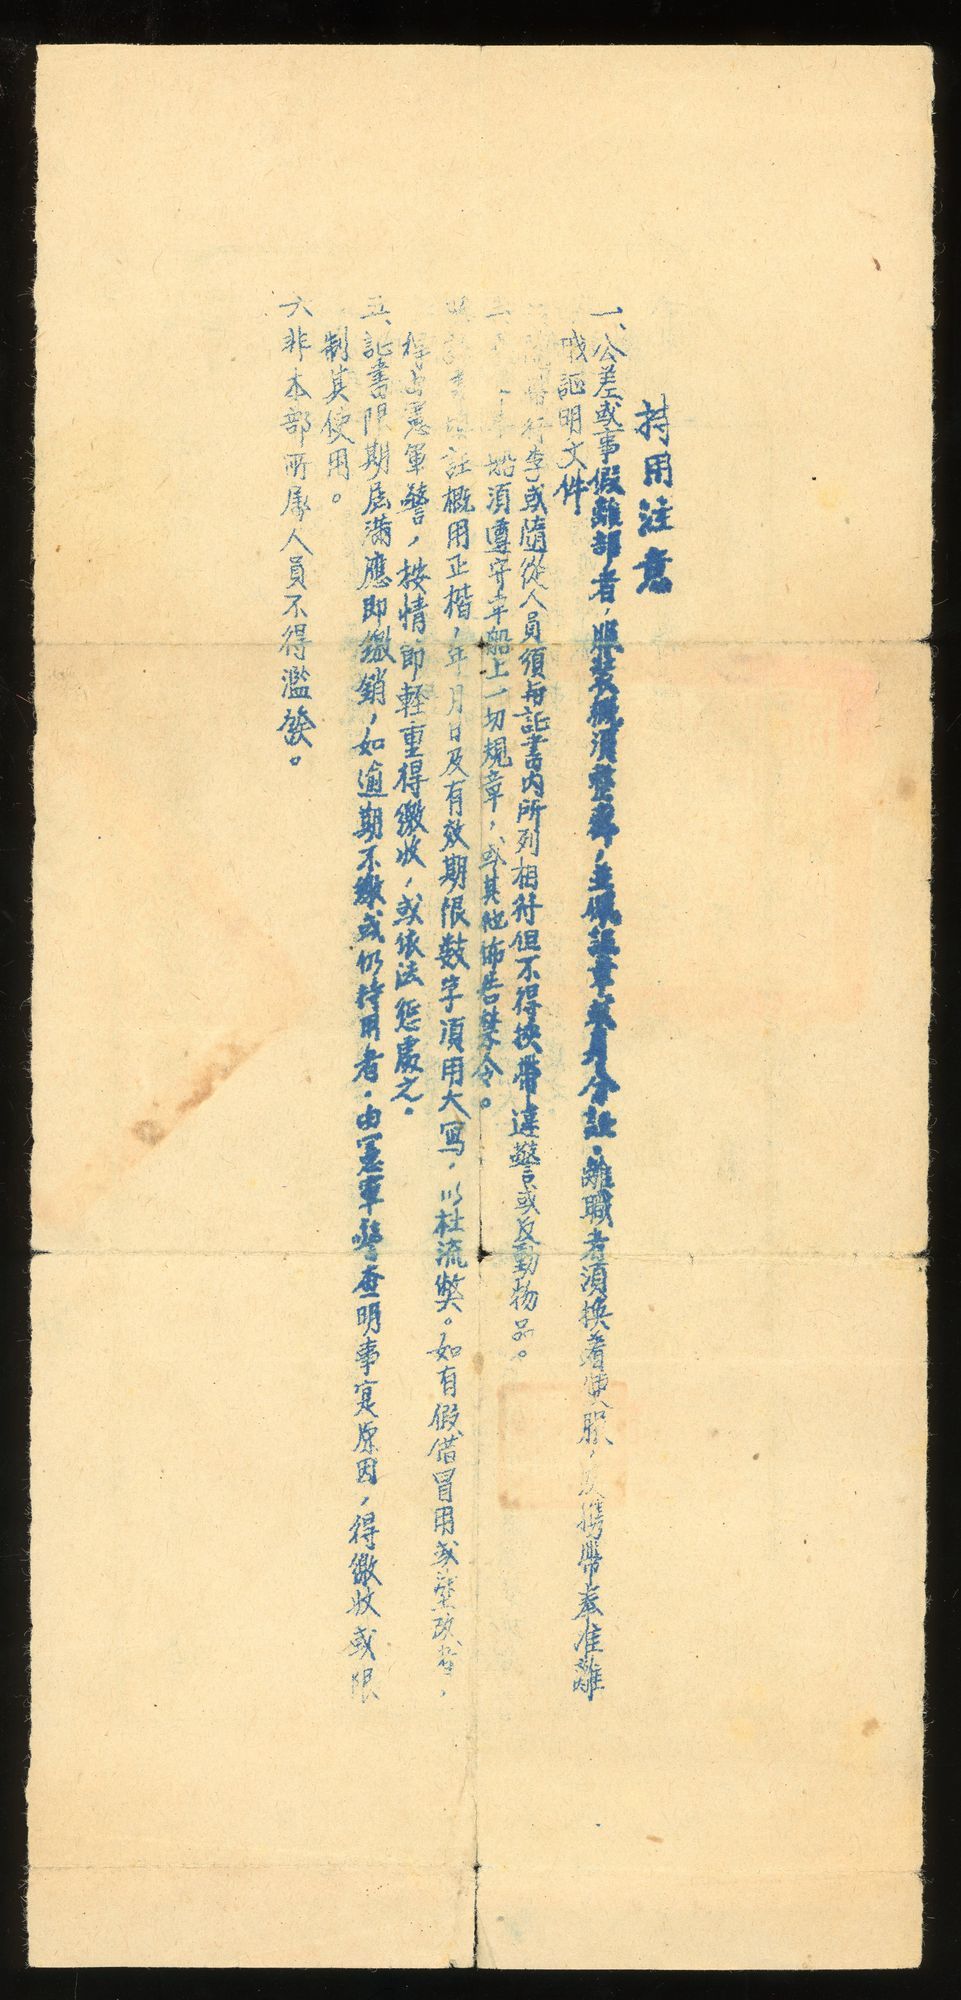 持用注意
一、公差或事假離部者，服裝須整齊，並佩證章或身分証，離職者須換着便服，及携帶奉准離
職証明文件
行李或隨從人員須与証書內所列相符但不得挾帶違警或反動物品。
船須遵守車船上一切規章，或其他佈告禁令。
註概用正楷，年月日及有效期限數字須用大寫，以杜流弊。如有假借冒用或塗改者，
得由憲軍警，按情節輕重得繳收，或依法懲處之。
五、証書限期屆滿應即繳銷，如逾期不繳或仍持用者，由憲軍警查明事实原因，得繳收或限
制其使用。
六非本部所屬人員不得濫發。